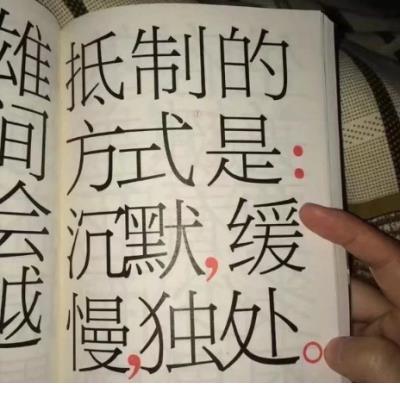 雄
间
会
越
抵制的
方式是：
沉默，缓
慢，独处。